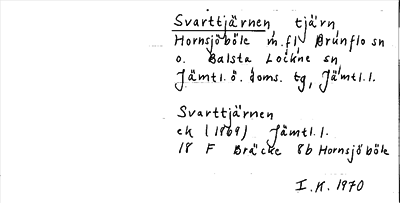 Svarttjärnen tjärn
Hornsjöböle m.fl. Brunflo sn
o. Balsta Lockne sn
Jämtl. ö. doms. tg, Jämtl. l.
Svarttjärnen
ek (1969) Jämtl. l.
18 F Bräcke 8b Hornsjöböle
I.K. 1970